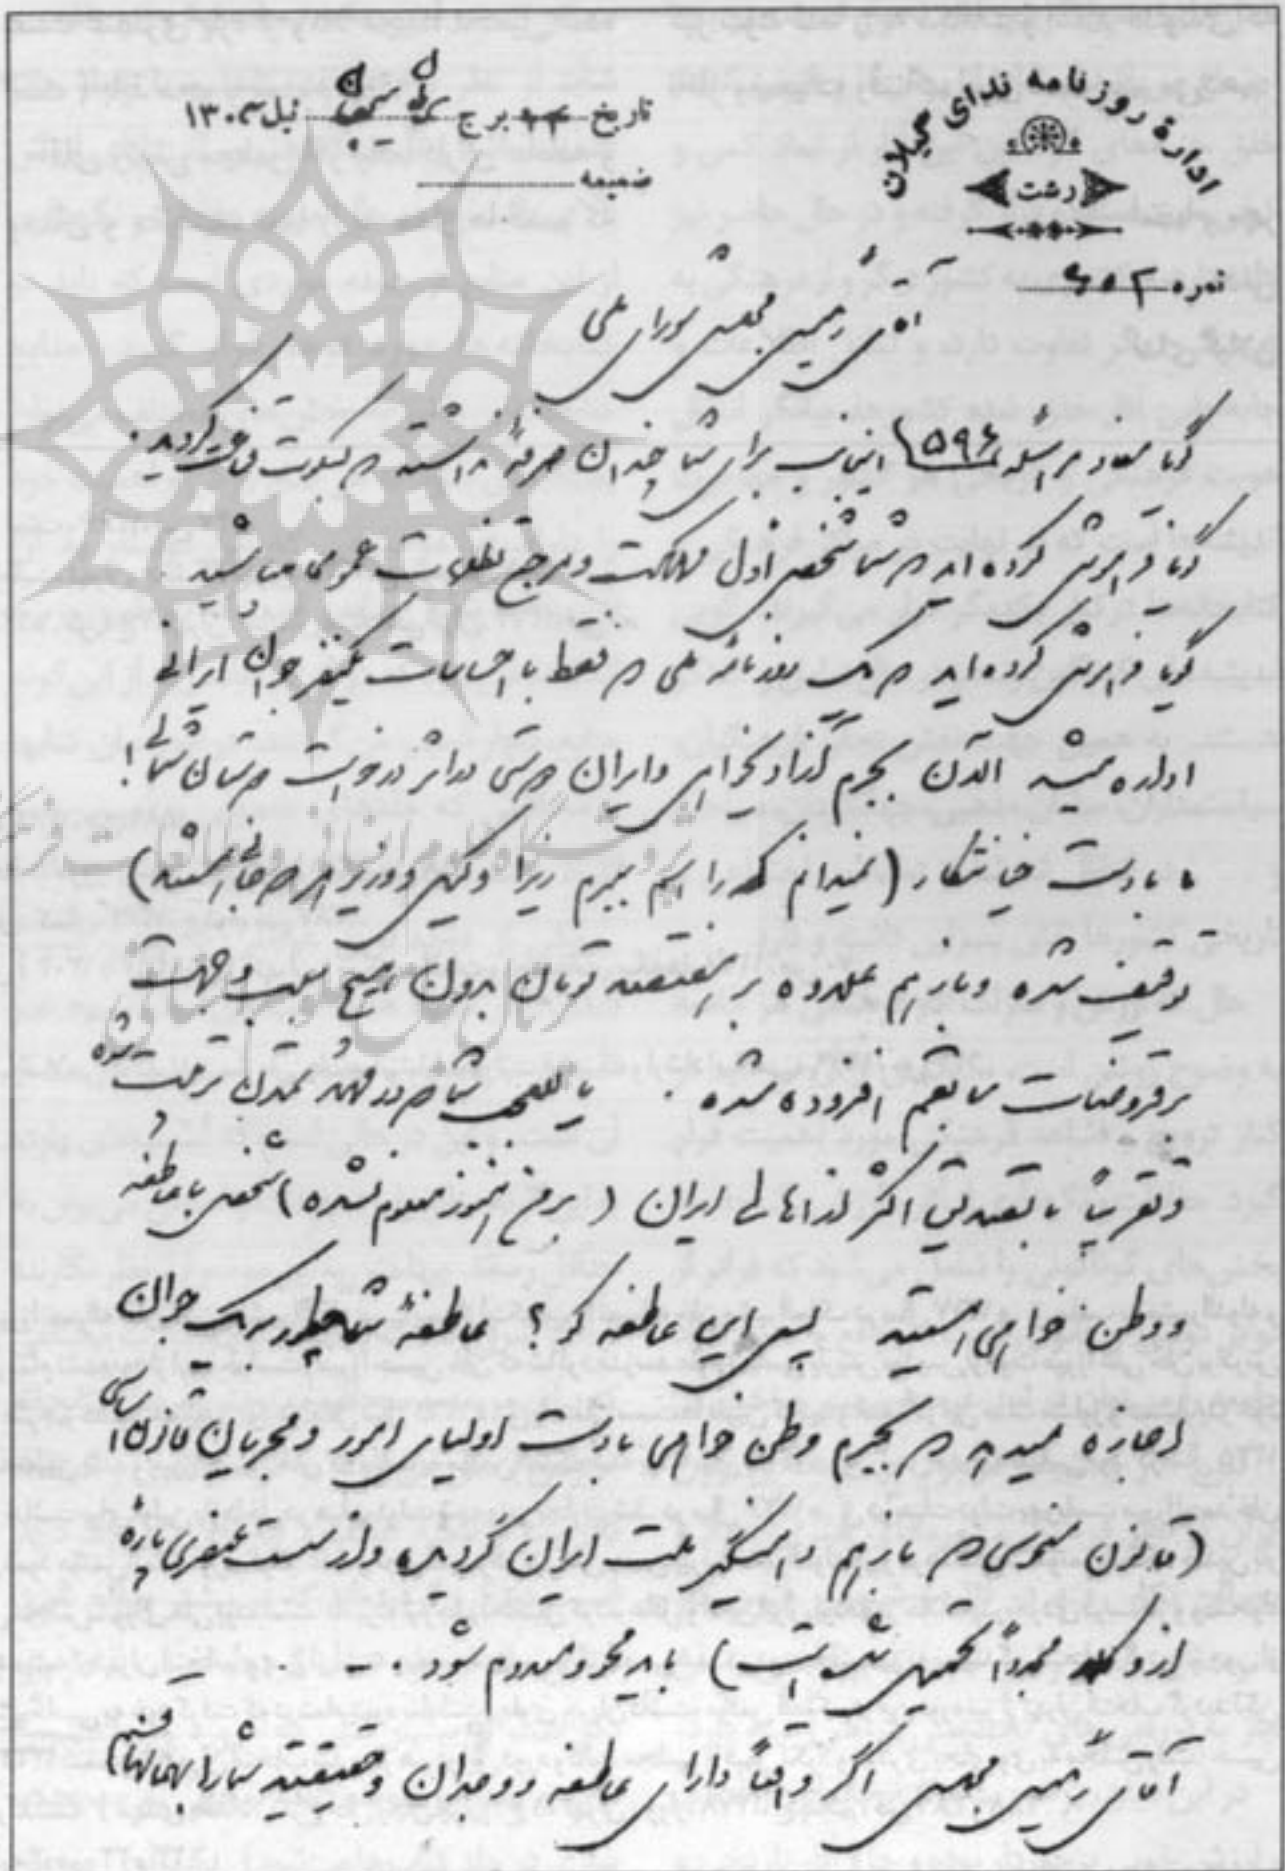 ادارهٔ روزنامه ندای گیلان
رشت
تاریخ ۲۴ برج سرطان نیل ۱۳۰۳
ضمیمه
نمره ۶۵۲
آقای رئیس مجلس شورای ملی
گویا مفاد مراسله ۵۹۶ اینجانب برای شما چندان صرفه نداشته که بسکوت قناعت کردید.
گویا فراموش کرده‌اید که شما شخص اول مملکت و مرجع تظلمات عمومی می‌باشید.
گویا فراموش کرده‌اید که یک روزنامه ملی که فقط با احساسات یکنفر جوان ایرانی
اداره میشد الآن بجرم آزادیخواهی و ایران پرستی در اثر درخواست دوستان شمالی!
با دست خیانتکار (نمیدانم که را اسم ببرم زیرا وکیل و وزیر هم خائن هستند)
توقیف شده و باز هم علاوه بر هفتصد تومان بدون هیچ سبب و جهت
بر قروضات سابقم افزوده شده. یا للعجب شما که در مهد تمدن تربیت شده
و تقریباً با تصدیق اکثر از اهالی ایران (بر من هنوز معلوم نشده) شخص با عاطفه
و وطن خواهی هستید پس این عاطفه کو؟ عاطفهٔ شما چطور به یک جوان
اجازه میدهد که بجرم وطن خواهی با دست اولیای امور و مجریان قانون اساسی
(قانون منحوسی که باز هم دامنگیر ملت ایران گردیده و از سمت عنصری پاره
از وکلاء مجدداً تحمیل شده است) باید محو و معدوم شود.
آقای رئیس مجلس اگر واقعاً دارای عاطفه و وجدان و حقیقتید شما را بهمانها قسم